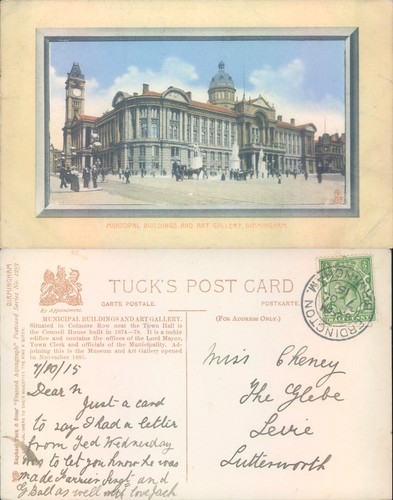 MUNICIPAL BUILDINGS AND ART GALLERY, BIRMINGHAM.
BIRMINGHAM
Postcard Series No.
Raphael Tuck & Sons'
By Appointment.
TUCK'S POST CARD
CARTE POSTALE.
POSTKARTE.
MUNICIPAL BUILDINGS AND ART GALLERY.
Situated in Colmore Row near the Town Hall is
the Council House built in 1874–78. It is a noble
edifice and contains the offices of the Lord Mayor,
Town Clerk and officials of the Municipality. Ad-
joining this is the Museum and Art Gallery opened
in November 1885.
(FOR ADDRESS ONLY.)
ERDINGTON
7/10/15
Dear
Just a card
to say I had a letter
from Ted Wednesday
was to let you know he was
made Farrier Sergt and
G Ball as well with love Jack
Miss Cheney
The Glebe
Leire
Lutterworth